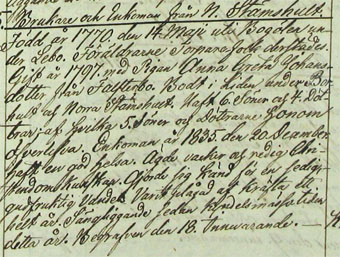 Brukare och Enkoman från N. Stamshult.
Född år 1770. den 14 Maji uti Bogden un-
der Lebo. Föräldrarne Torparefolk derstädes.
Gift år 1791. med Pigan Anna Greta Johans-
dotter från Falterbo. Bodt i Liden under
hult af Norra Stamshult. Haft 6. Söner och 4. Döt-
trar; af hvilka 5. Söner och Döttrarne honom
öfverlefva. Enkoman år 1835. den 20 December.
Haft en god helsa. Ägde vacker och redig Chri-
stendomskunskap. Gjorde sig känd för en sedig,
gudfruktig vandel. Varit plågad af
helt år. Sängliggande sedan
detta år. Begrafven den 18. Innevarande.